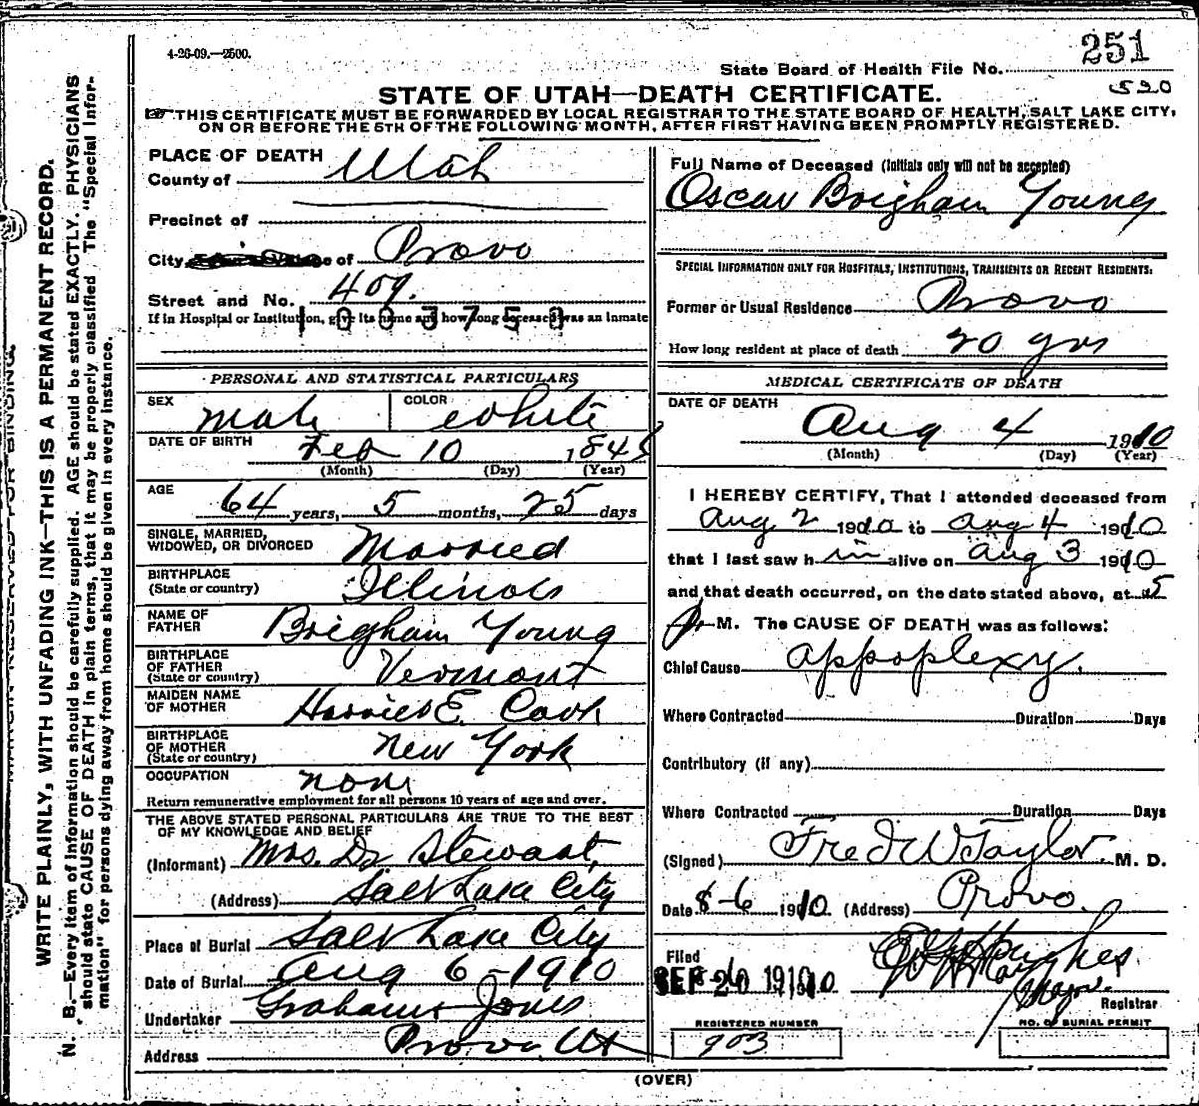 4-26-09.—2500.
251
State Board of Health File No.
520
STATE OF UTAH—DEATH CERTIFICATE.
THIS CERTIFICATE MUST BE FORWARDED BY LOCAL REGISTRAR TO THE STATE BOARD OF HEALTH, SALT LAKE CITY,
ON OR BEFORE THE 5TH OF THE FOLLOWING MONTH, AFTER FIRST HAVING BEEN PROMPTLY REGISTERED.
WRITE PLAINLY, WITH UNFADING INK—THIS IS A PERMANENT RECORD.
N. B.—Every item of information should be carefully supplied. AGE should be stated EXACTLY. PHYSICIANS
should state CAUSE OF DEATH in plain terms, that it may be properly classified. The "Special Infor-
mation" for persons dying away from home should be given in every instance.
PLACE OF DEATH
County of Utah
Precinct of
City of Provo
Street and No. 409.
If in Hospital or Institution, give its name and how long deceased was an inmate
1003758
PERSONAL AND STATISTICAL PARTICULARS
SEX Male COLOR White
DATE OF BIRTH Feb 10 1846
(Month) (Day) (Year)
AGE
64 years, 5 months, 25 days
SINGLE, MARRIED,
WIDOWED, OR DIVORCED Married
BIRTHPLACE
(State or country) Illinois
NAME OF
FATHER Brigham Young
BIRTHPLACE
OF FATHER
(State or country) Vermont
MAIDEN NAME
OF MOTHER Harriet E. Cook
BIRTHPLACE
OF MOTHER
(State or country) New York
OCCUPATION none
Return remunerative employment for all persons 10 years of age and over.
THE ABOVE STATED PERSONAL PARTICULARS ARE TRUE TO THE BEST
OF MY KNOWLEDGE AND BELIEF
(Informant) Mrs. Dr Stewart,
(Address) Salt Lake City
Place of Burial Salt Lake City
Date of Burial Aug 6-1910
Undertaker Graham & Jones
Address Provo, Ut
Full Name of Deceased (Initials only will not be accepted)
Oscar Brigham Young
SPECIAL INFORMATION ONLY FOR HOSPITALS, INSTITUTIONS, TRANSIENTS OR RECENT RESIDENTS:
Former or Usual Residence Provo
How long resident at place of death 20 yrs
MEDICAL CERTIFICATE OF DEATH
DATE OF DEATH
Aug 4 1910
(Month) (Day) (Year)
I HEREBY CERTIFY, That I attended deceased from
Aug 2 1910 to Aug 4 1910
that I last saw him alive on Aug 3 1910
and that death occurred, on the date stated above, at 5
P. M. The CAUSE OF DEATH was as follows:
Chief Cause appoplexy.
Where Contracted Duration Days
Contributory (if any)
Where Contracted Duration Days
(Signed) Fred W Taylor M. D.
Date 8-6 1910 (Address) Provo.
Filed
SEP 20 1910 Hughes
Registrar
REGISTERED NUMBER
903
NO. OF BURIAL PERMIT
(OVER)